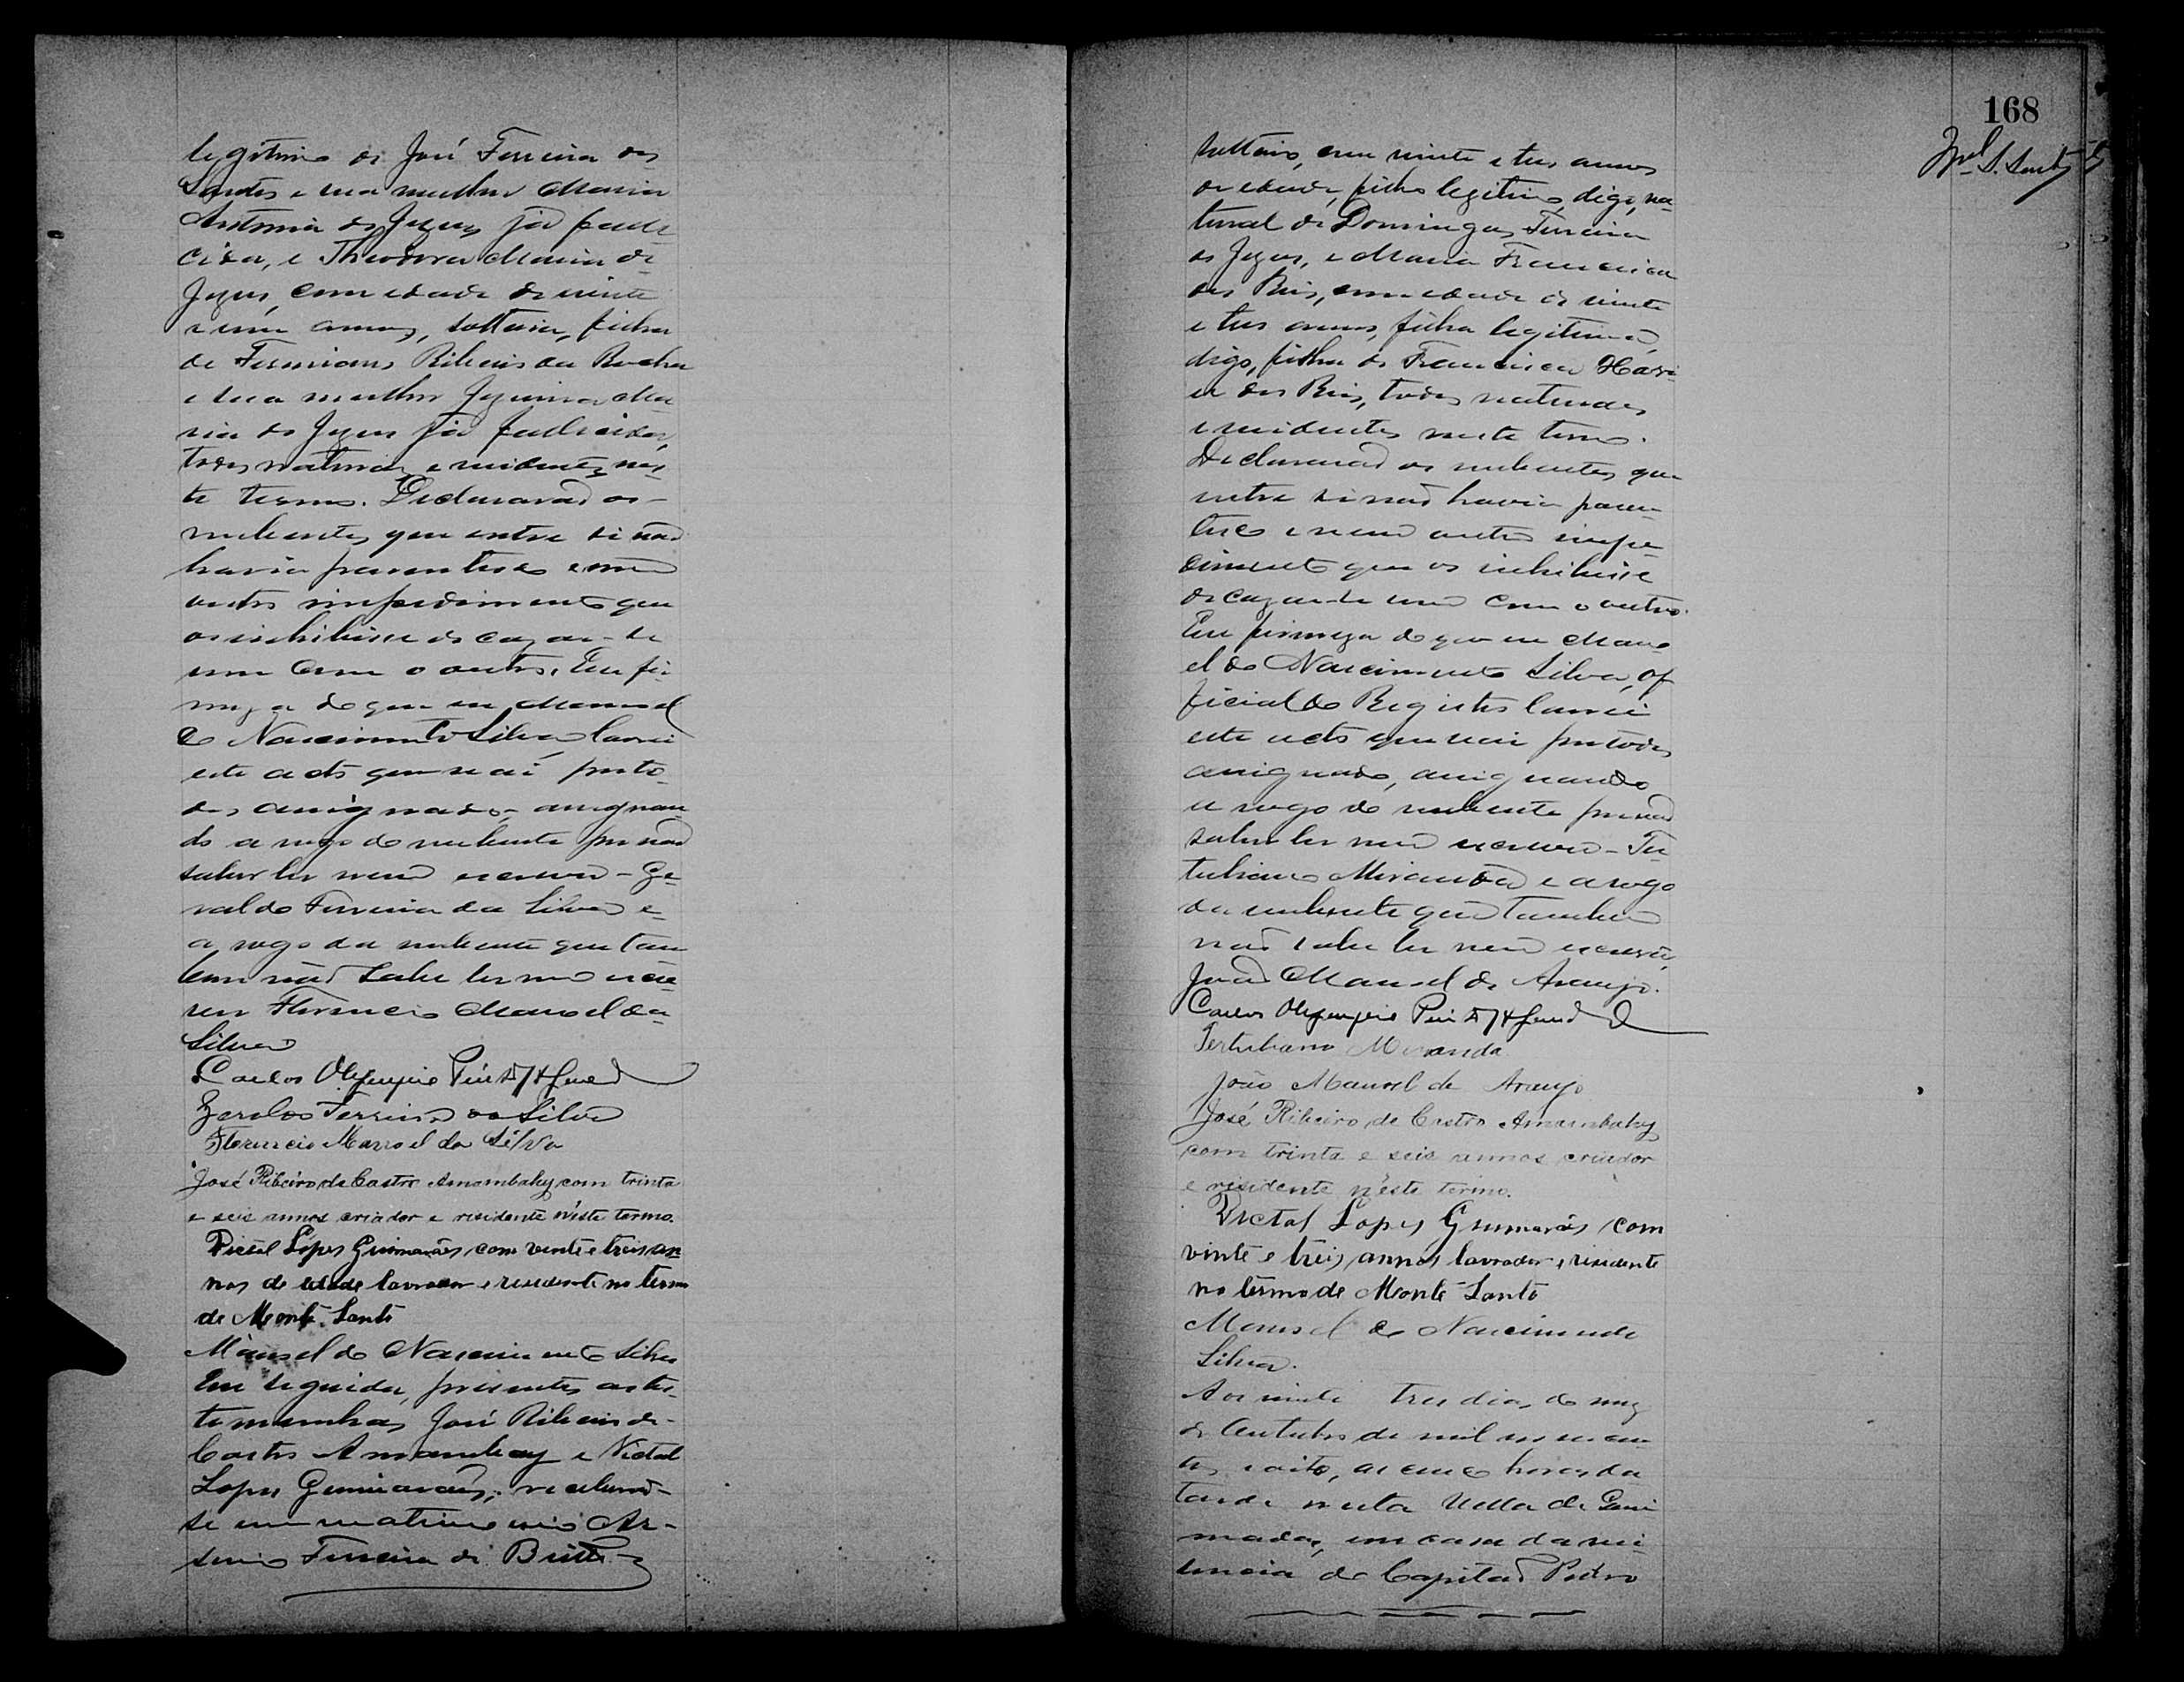 legitimo de José Ferreira dos
Santos e sua mulher Maria
Antonia de Jezus já falle
cida, e Theodora Maria de
Jezus, com edade de vinte
e um annos, solteira, filha
de Firmiano Ribeiro da Rocha
e sua mulher Jezuina Ma
ria de Jezus já fallecidos,
todos naturaes e residentes nes
te termo. Declararaõ os
nubentes que entre si naõ
havia parentesco e nem
outro impedimento que
os inhibisse de cazar-se
um com o outro. Em fir
meza do que eu Manoel
do Nascimento Silva lavrei
este acto que vai por to
dos assignado, assignan
do a rogo do nubente por naõ
saber ler nem escrever - Ge
raldo Ferreira da Silva e
a rogo da nubente que tam
bem naõ sabe ler nem escre
ver Florencio Manoel da
Silva
Carlos Olympio Pinto
Geraldo Ferreira da Silva
Florencio Manoel da Silva
José Ribeiro de Castro Amambahy com trinta
e seis annos criador e residente n'este termo.
Victal Lopes Guimarães, com vinte e treis an
nos de edade lavrador e residente no termo
de Monte Santo
Manoel do Nascimento Silva
Em seguida, presentes as tes
temunhas José Ribeiro de
Castro Amambay e Victal
Lopes Guimarães, receberaõ-
se em matrimonio Ar-
senio Ferreira de Britto
168
solteiro, com vinte e tres annos
de edade, filho legitimo, digo, na
tural de Domingas Ferreira
de Jezus, e Maria Francisca
dos Reis, com edade de vinte
e tres annos, filha legitima,
digo, filha de Francisca Xavi
er dos Reis, todos naturaes
e residentes neste termo.
Declararaõ os nubentes que
entre si naõ havia paren
tesco e nem outro impe
dimento que os inhibisse
de cazar-se um com o outro.
Em firmeza do que eu Mano
el do Nascimento Silva, Of
ficial do Registro lavrei
este acto que vai por todos
assignado, assignando
a rogo do nubente por naõ
saber ler nem escrever - Ter
tuliano Miranda e a rogo
da nubente que tambem
naõ sabe ler nem escrever,
João Manoel de Araujo.
Carlos Olympio Pinto
Tertuliano Miranda
João Manoel de Araujo
José Ribeiro de Castro Amambahy
com trinta e seis annos criador
e residente n'este termo.
Victal Lopes Guimarães com
vinte e treis annos lavrador e residente
no termo de Monte Santo
Manoel do Nascimento
Silva.
Aos vinte tres dias do mez
de Outubro de mil novecen
tos e oito, as cinco horas da
tarde nesta Villa de Quei
madas, em casa da resi
dencia do Capitaõ Pedro